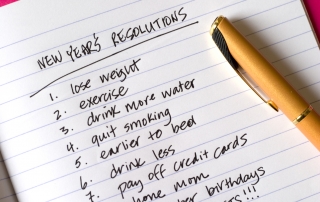 NEW YEAR'S RESOLUTIONS
1. lose weight
2. exercise
3. drink more water
4. quit smoking
5. earlier to bed
6. drink less
7. pay off credit cards
home mom
birthdays
!!!